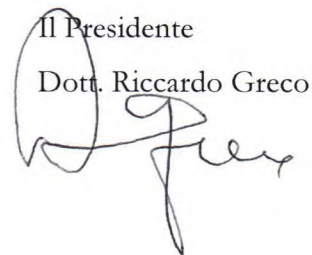 Il Presidente
Dott. Riccardo Greco